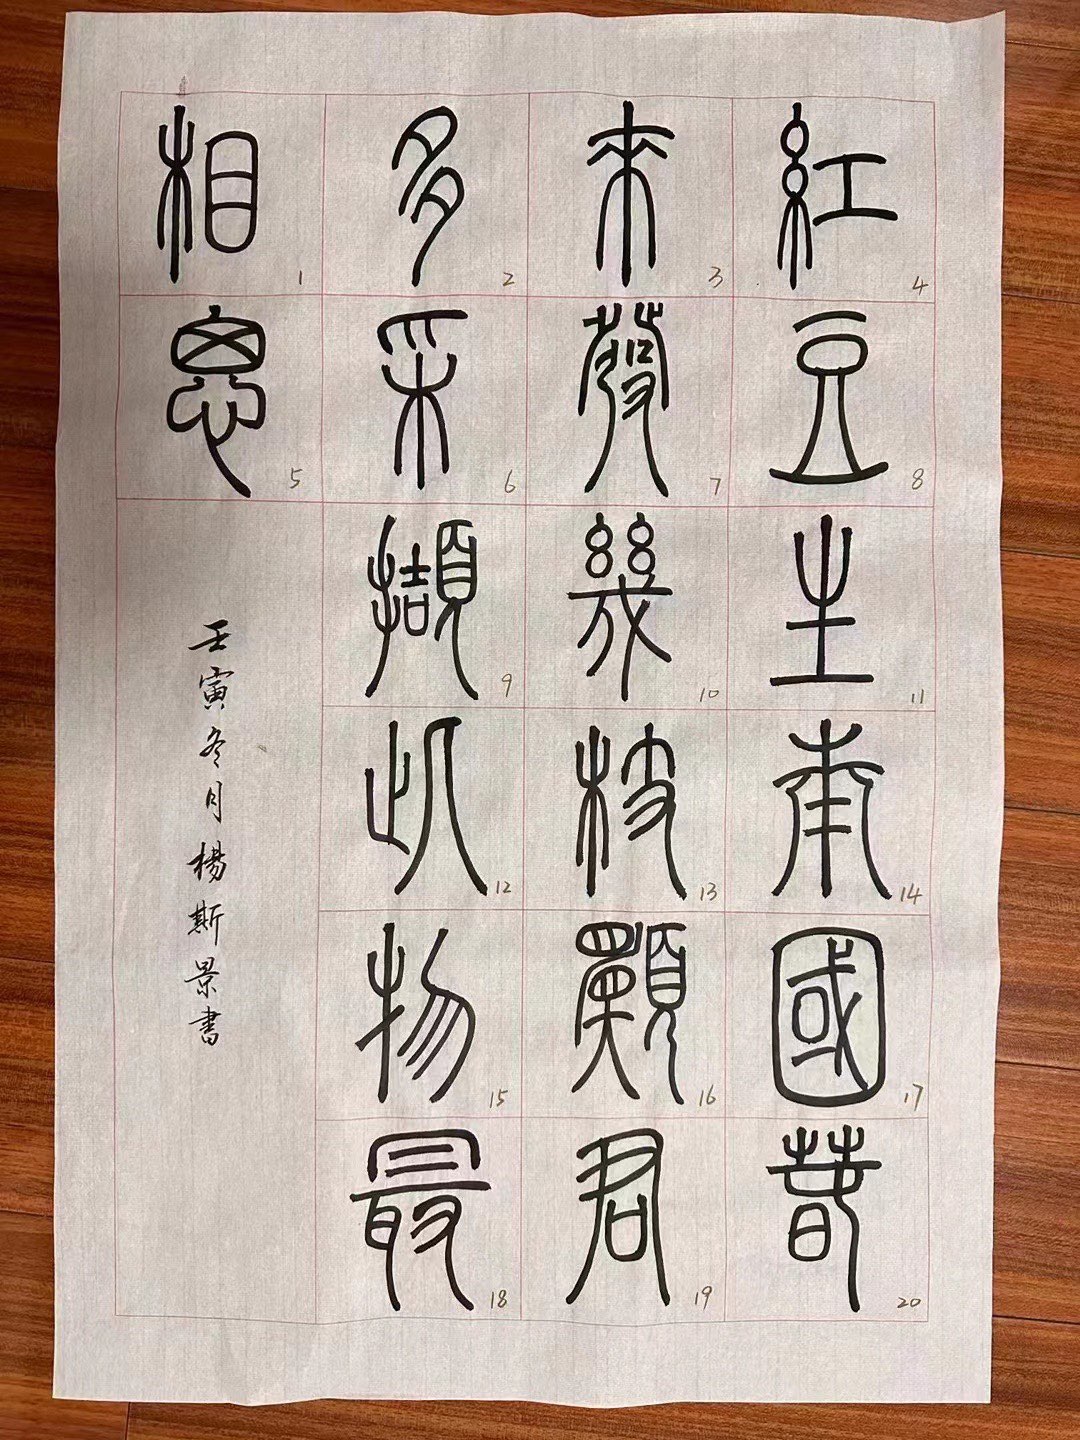 紅 4 豆 8 生 11 南 14 國 17 春 20
來 3 發 7 幾 10 枝 13 願 16 君 19
多 2 采 6 擷 9 此 12 物 15 最 18
相 1 思 5
壬寅冬月楊斯景書